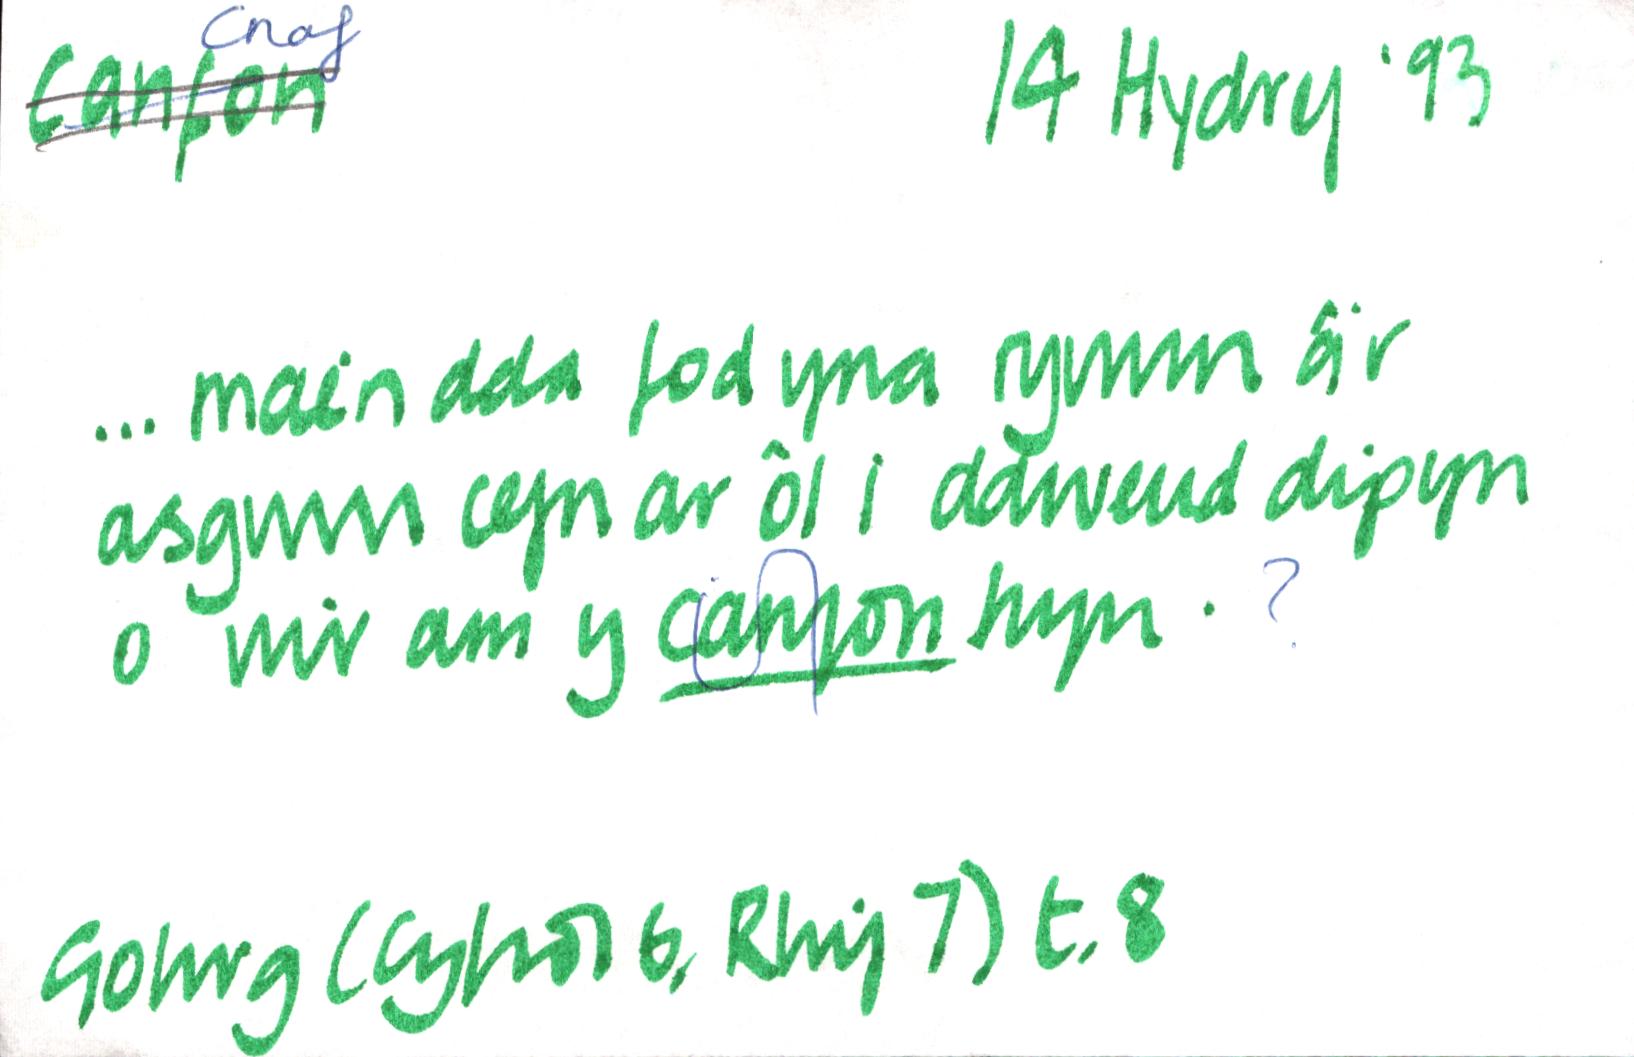 Cnaf
Canfon
14 Hydref '93
... mae'n dda fod yna rywun â'r
asgwrn cefn ar ôl i ddweud dipyn
o wir am y canfon hyn. ?
Golwg (Cyfrol 6, Rhif 7) t.8